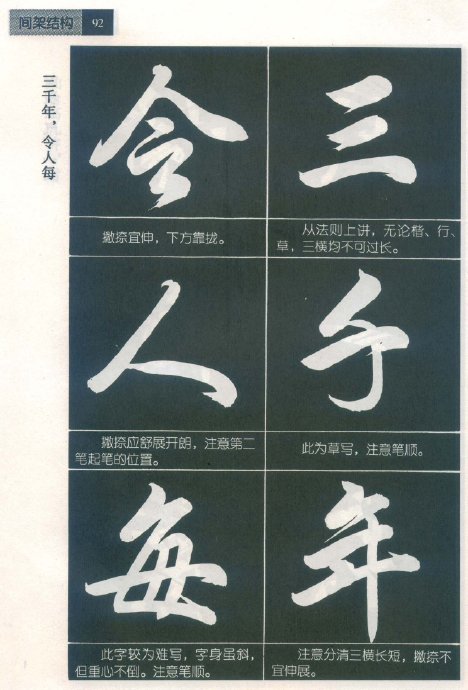 间架结构 92
三千年，令人每
三
从法则上讲，无论楷、行、
草，三横均不可过长。
千
此为草写，注意笔顺。
年
注意分清三横长短，撇捺不
宜伸展。
令
撇捺宜伸，下方靠拢。
人
撇捺应舒展开朗，注意第二
笔起笔的位置。
每
此字较为难写，字身虽斜，
但重心不倒。注意笔顺。